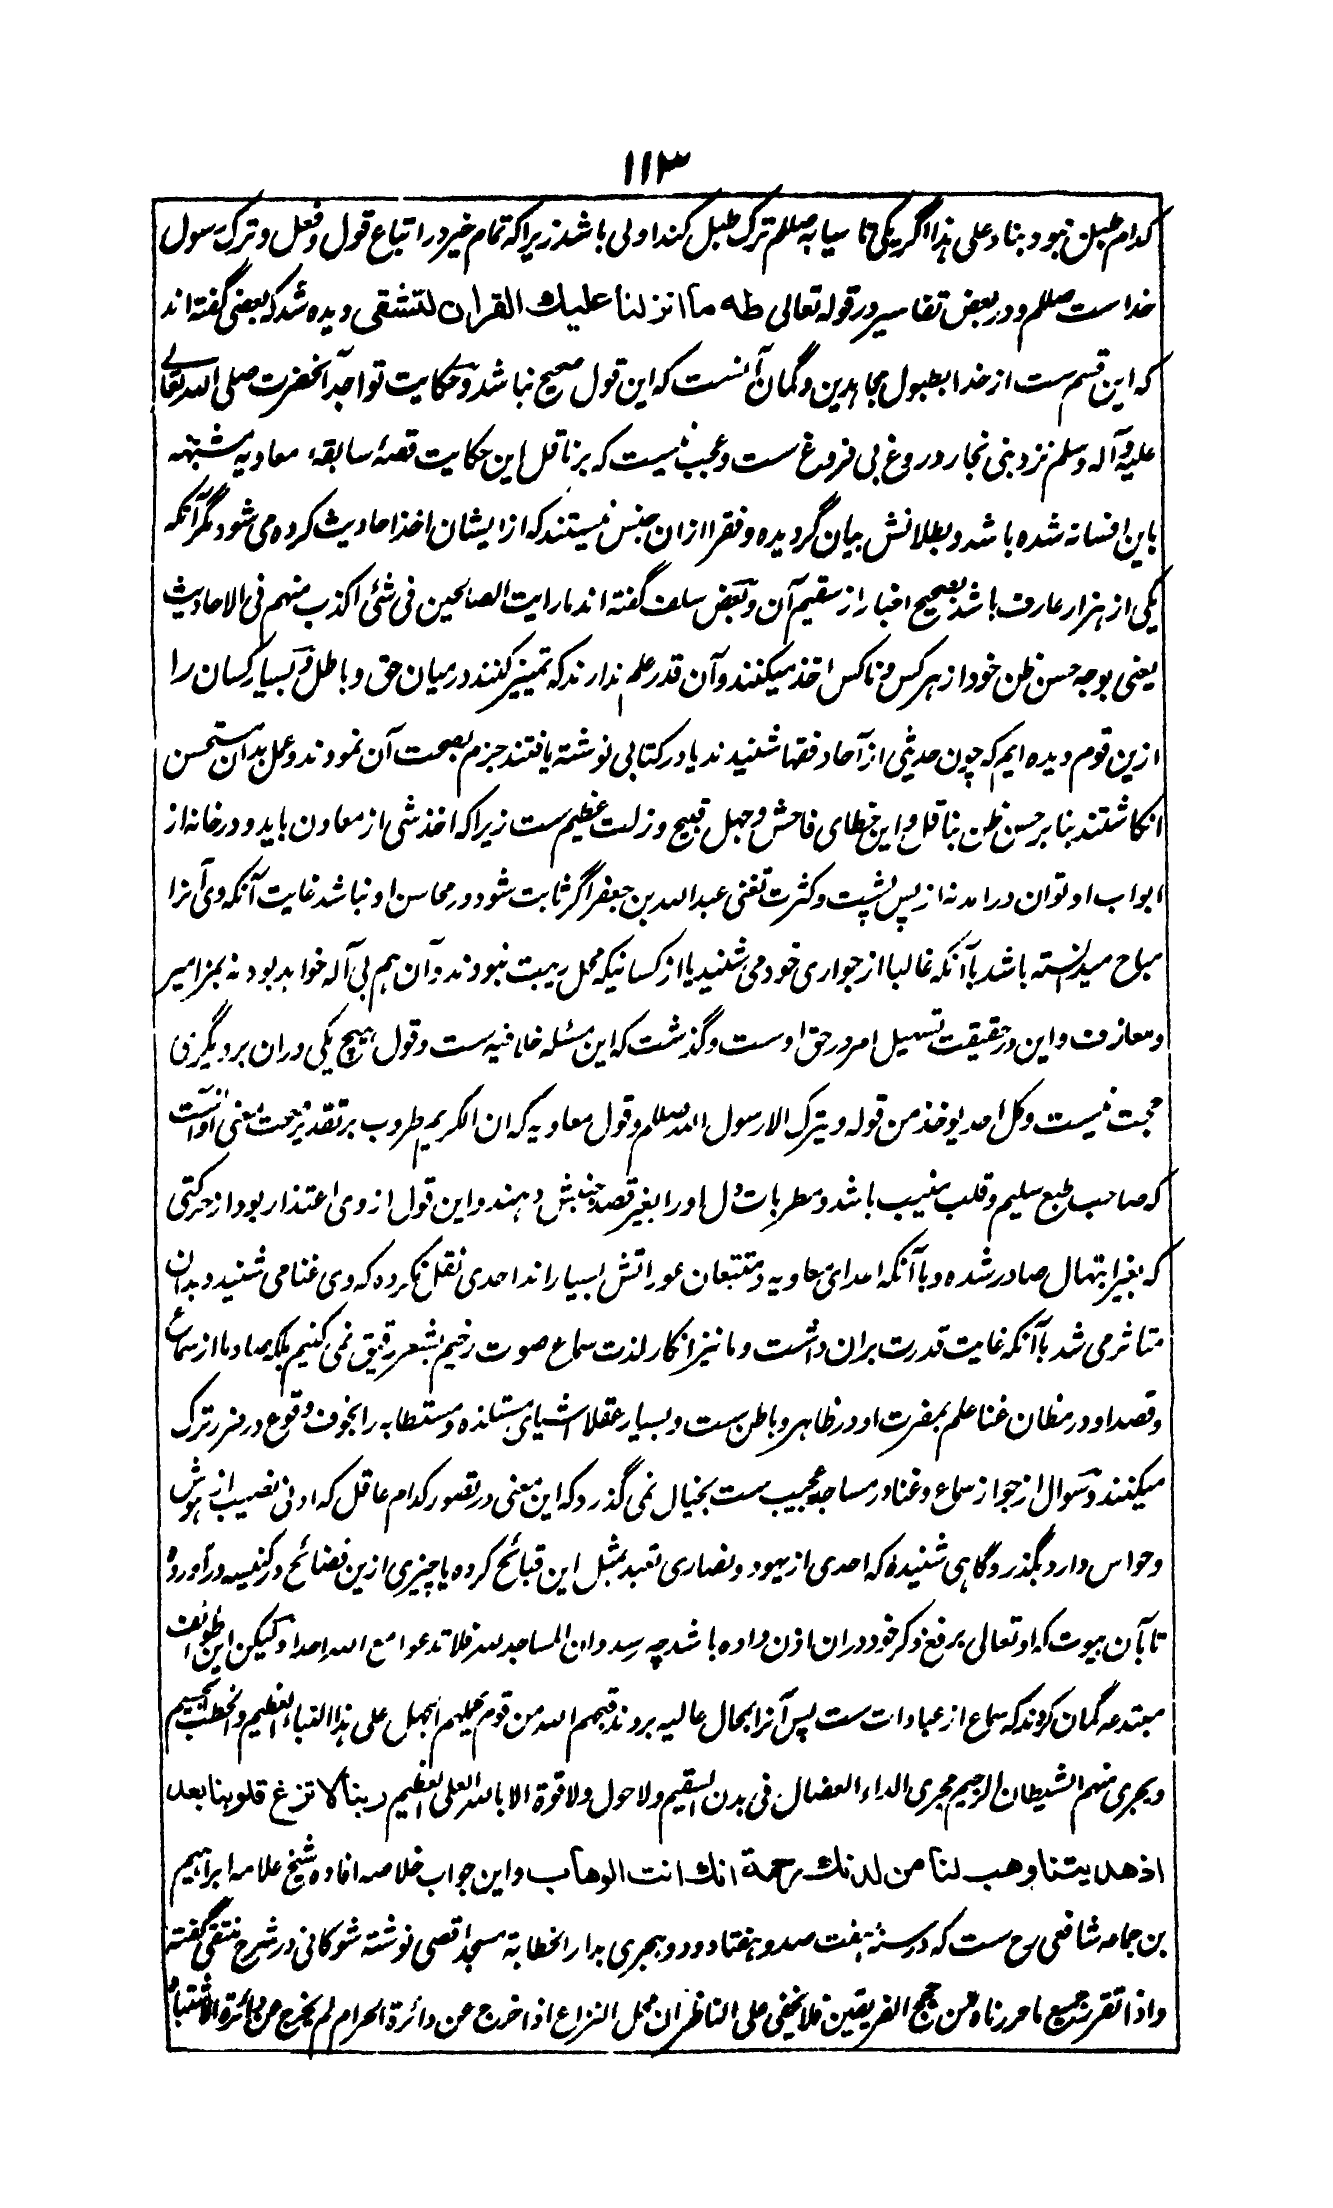 ۱۱۳
کدام طبل نبود بناء علی هذا اگر یکی تاسیا به صللم ترک طبل کند اولی باشد زیراکه تمام خیر در اتباع قول و فعل و ترک رسول
خداست صللم و در بعض تفاسیر در قوله تعالی طه ما انزلنا علیك القران لتشقی دیده شد که بعضی گفته اند
که این قسم ست از خدا بطبول مجاهدین و گمان آنست که این قول صحیح نباشد و حکایت تواجد آنحضرت صلی الله تعالی
علیه و آله وسلم نزد بنی نجار دروغ بی فروغ ست و عجب نیست که بر ناقل این حکایت قصهٔ سابقهٔ معاویه مشتبه
باین افسانه شده باشد و بطلانش بیان گردیده و فقرا ازان جنس نیستند که از ایشان اخذ احادیث کرده می شود مگر آنکه
یکی از هزار عارف باشد بصحیح اخبار از سقیم آن و بعض سلف گفته اند ما رایت الصالحین فی شئی اکذب منهم فی الاحادیث
یعنی بوجه حسن ظن خود از هر کس و ناکس اخذ میکنند و آن قدر علم ندارند که تمییز کنند درمیان حق و باطل و بسیار کسان را
ازین قوم دیده ایم که چون حدیثی از آحاد فقها شنیدند یا در کتابی نوشته یافتند جزم بصحت آن نمودند و عمل بدان مستحسن
انکاشتند بنابر حسن ظن بناقل و این خطای فاحش و جهل قبیح و زلت عظیم ست زیراکه اخذ شی از معادن باید و در خانه از
ابواب او توان درامد نه از پس پشت و کثرت تغنی عبدالله بن جعفر اگر ثابت شود در محاسن او نباشد غایت آنکه وی آنرا
مباح میدانسته باشد باآنکه غالبا از جواری خود می شنید یا از کسانیکه محل ریبت نبودند و آن هم بی آله خواهد بود نه بمزامیر
و معازف و این در حقیقت تسهیل امر در حق اوست و گذشت که این مسئله خلافیه ست و قول هیچ یکی دران بر دیگری
حجت نیست و کل احد یوخذ من قوله و یترک الا رسول الله صللم و قول معاویه که ان الکریم طروب بر تقدیر صحت معنی او آنست
که صاحب طبع سلیم و قلب منیب باشد و مطربات دل او را بغیر قصد جنبش دهند و این قول از وی اعتذار بود از حرکتی
که بغیر ابتهال صادر شده و باآنکه اعدای معاویه و متتبعان عوراتش بسیار اند احدی نقل نکرده که وی غنا می شنید و بدان
متاثر می شد باآنکه غایت قدرت بران داشت و ما نیز انکار لذت سماع صوت رخیم بشعر رقیق نمی کنیم بلکه صاد ما از سماع
و قصد او در مظان غنا علم بمضرت او در ظاهر و باطن ست و بسیار عقلا اشیای مستلذه و مستطابه را بخوف وقوع در ضرر ترک
میکنند و سوال از جواز سماع و غنا در مساجد عجیب ست بخیال نمی گذرد که این معنی در تصور کدام عاقل که ادنی نصیب از هوش
و حواس دارد بگذرد و گاهی شنیدهٔ که احدی از یهود و نصاری تعبد بمثل این قبائح کرده یا چیزی ازین فضائح در کنیسه درآورده
تا بآن بیوت که او تعالی برفع ذکر خود دران اذن داده باشد چه رسد و ان المساجد لله فلا تدعوا مع الله احدا و لیکن این طوائف
مبتدعه گمان کردند که سماع از عبادات ست پس آنرا بمحال عالیه بردند قبحهم الله من قوم حملهم الجهل علی هذا النباء العظیم و الخطب الجسیم
و یجری منهم الشیطان الرجیم مجری الداء العضال فی بدن السقیم ولا حول ولا قوة الا بالله العلی العظیم ربنا لا تزغ قلوبنا بعد
اذ هدیتنا وهب لنا من لدنك رحمة انك انت الوهاب و این جواب خلاصه افادهٔ شیخ علامه ابراهیم
بن جامه شافعی رح ست که در سنهٔ هفت صد و هفتاد و دو هجری بدار الخطابة مسجد اقصی نوشته شوکانی در شرح منتقی گفته
و اذا تقرر جمیع ما حررناه من حجج الفریقین فلا یخفی علی الناظر ان محل النزاع اذا خرج عن دائرة الحرام لم یخرج عن دائرة الاشتباه